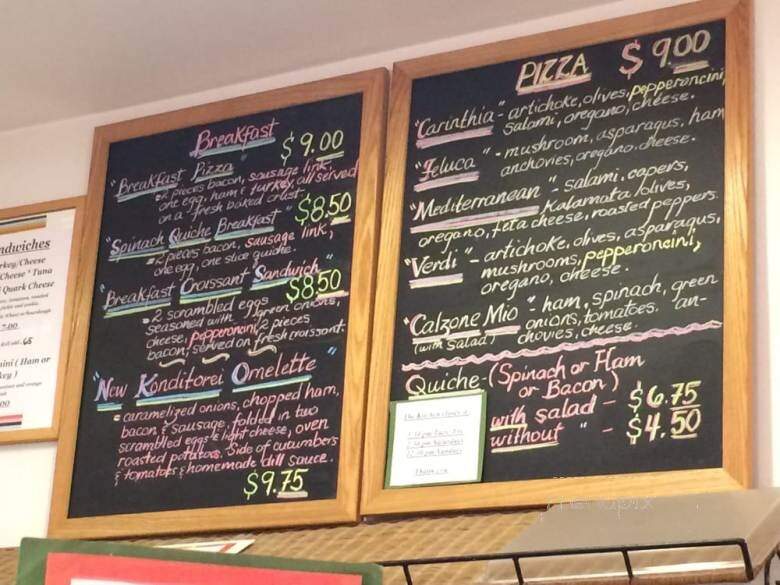 Breakfast
"Breakfast Pizza $9.00
2 pieces bacon, sausage link,
one egg, ham & turkey, all served
on a fresh baked crust.
"Spinach Quiche Breakfast" $8.50
2 pieces bacon, sausage link,
one egg, one slice quiche.
"Breakfast Croissant Sandwich"
$8.50
= 2 scrambled eggs
seasoned with green onions,
cheese, pepperoncini, 2 pieces
bacon, served on fresh croissant.
"New Konditorei Omelette"
= caramelized onions, chopped ham,
bacon & sausage, folded in two
scrambled eggs & light cheese, oven
roasted potatoes. Side of cucumbers
& tomatoes & homemade dill sauce.
$9.75
PIZZA $9.00
"Carinthia" - artichoke, olives, pepperoncini,
salami, oregano, cheese.
"Feluca" - mushroom, asparagus, ham
anchovies, oregano, cheese.
"Mediterranean" - salami, capers,
Kalamata olives,
oregano, feta cheese, roasted peppers.
"Verdi" - artichoke, olives, asparagus,
mushrooms, pepperoncini,
oregano, cheese.
"Calzone Mio" - ham, spinach, green
(with salad) onions, tomatoes, an-
chovies, cheese.
Quiche - (Spinach or Ham
or Bacon)
with salad - $6.75
without " - $4.50
ndwiches
rkey/Cheese
Cheese * Tuna
Quark Cheese
7.00
.65
ini (Ham or
key)